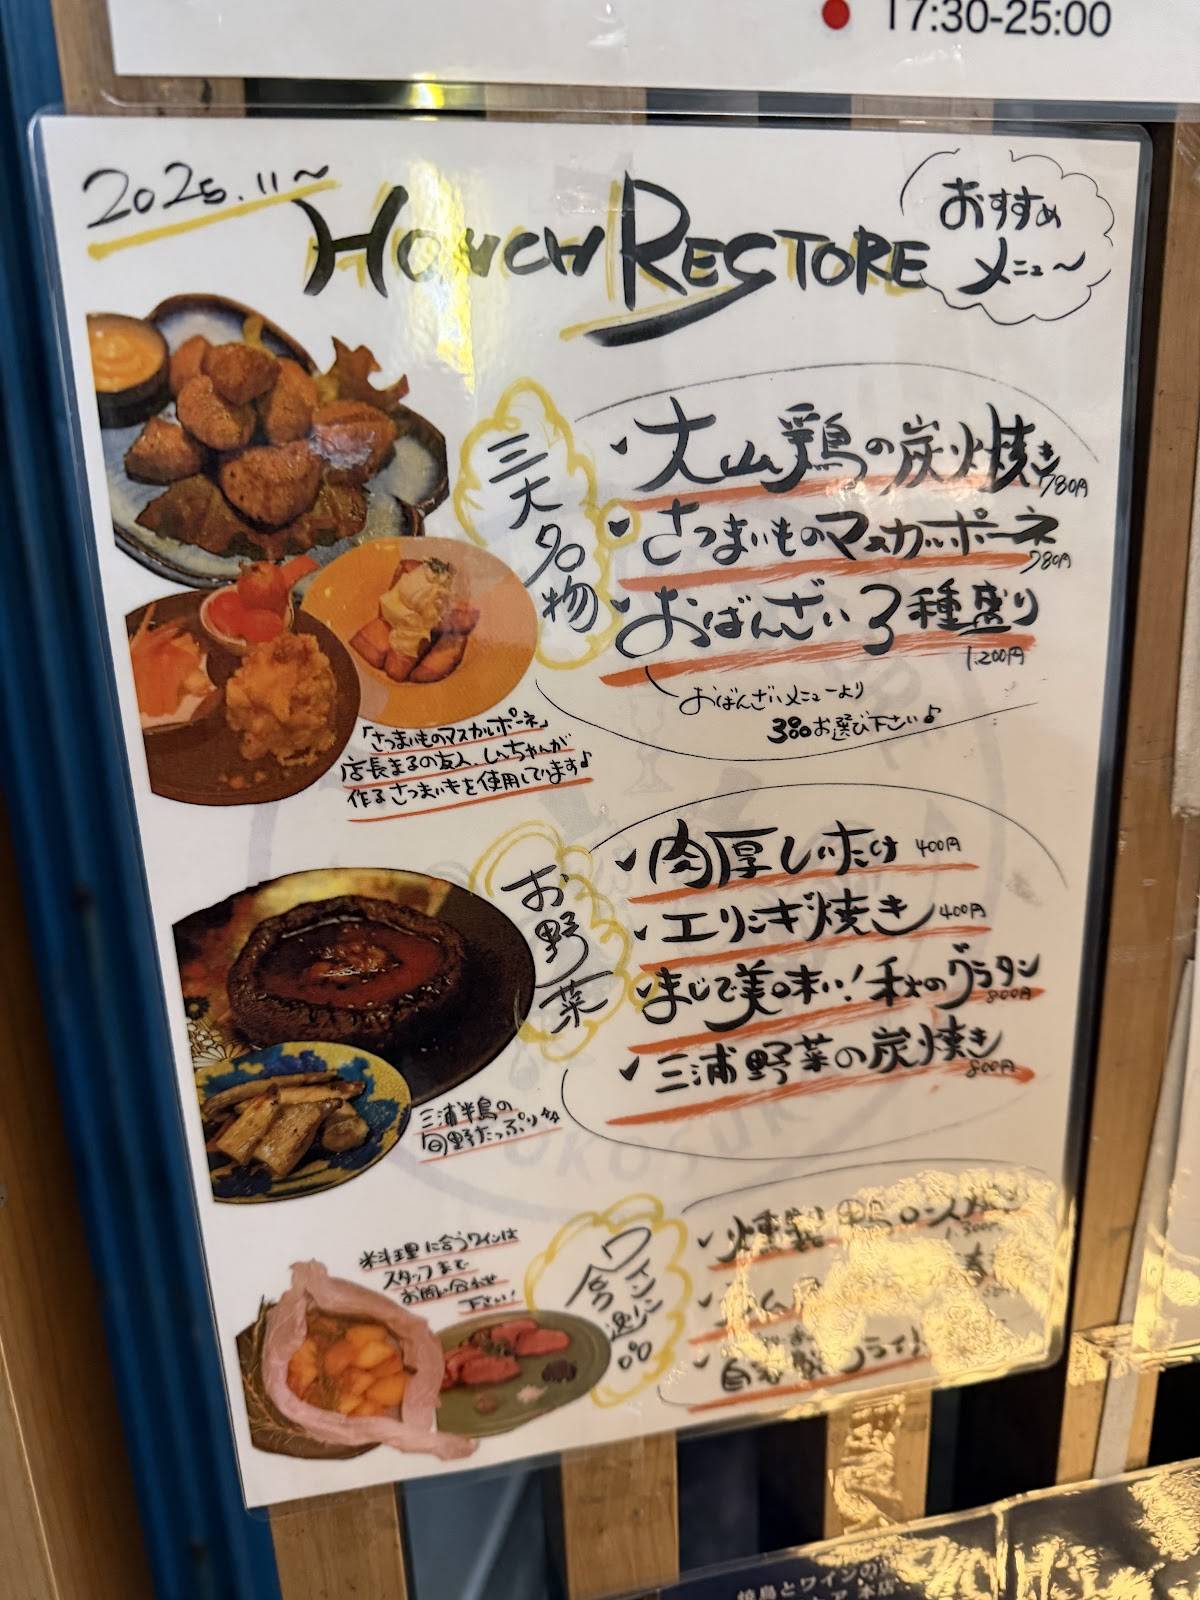 17:30-25:00
2025.11〜
HONCH RESTORE
おすすめ
メニュ〜
三大名物
大山鶏の炭火焼き
780円
さつまいものマスカルポーネ
780円
おばんざい3種盛り
1,200円
おばんざいメニューより
3つお選び下さい♪
「さつまいものマスカルポーネ」
店長まるの友人、しいちゃんが
作るさつまいもを使用しています♪
お野菜
肉厚しいたけ 400円
エリンギ焼き 400円
まじで美味い!秋のグラタン
800円
三浦野菜の炭火焼き
800円
三浦半島の
旬野菜たっぷり
ワインの逸品
料理に合うワインは
スタッフまで
お問い合わせ
下さい!
燻製鴨ロース
1,300円
自家製
焼鳥とワインの